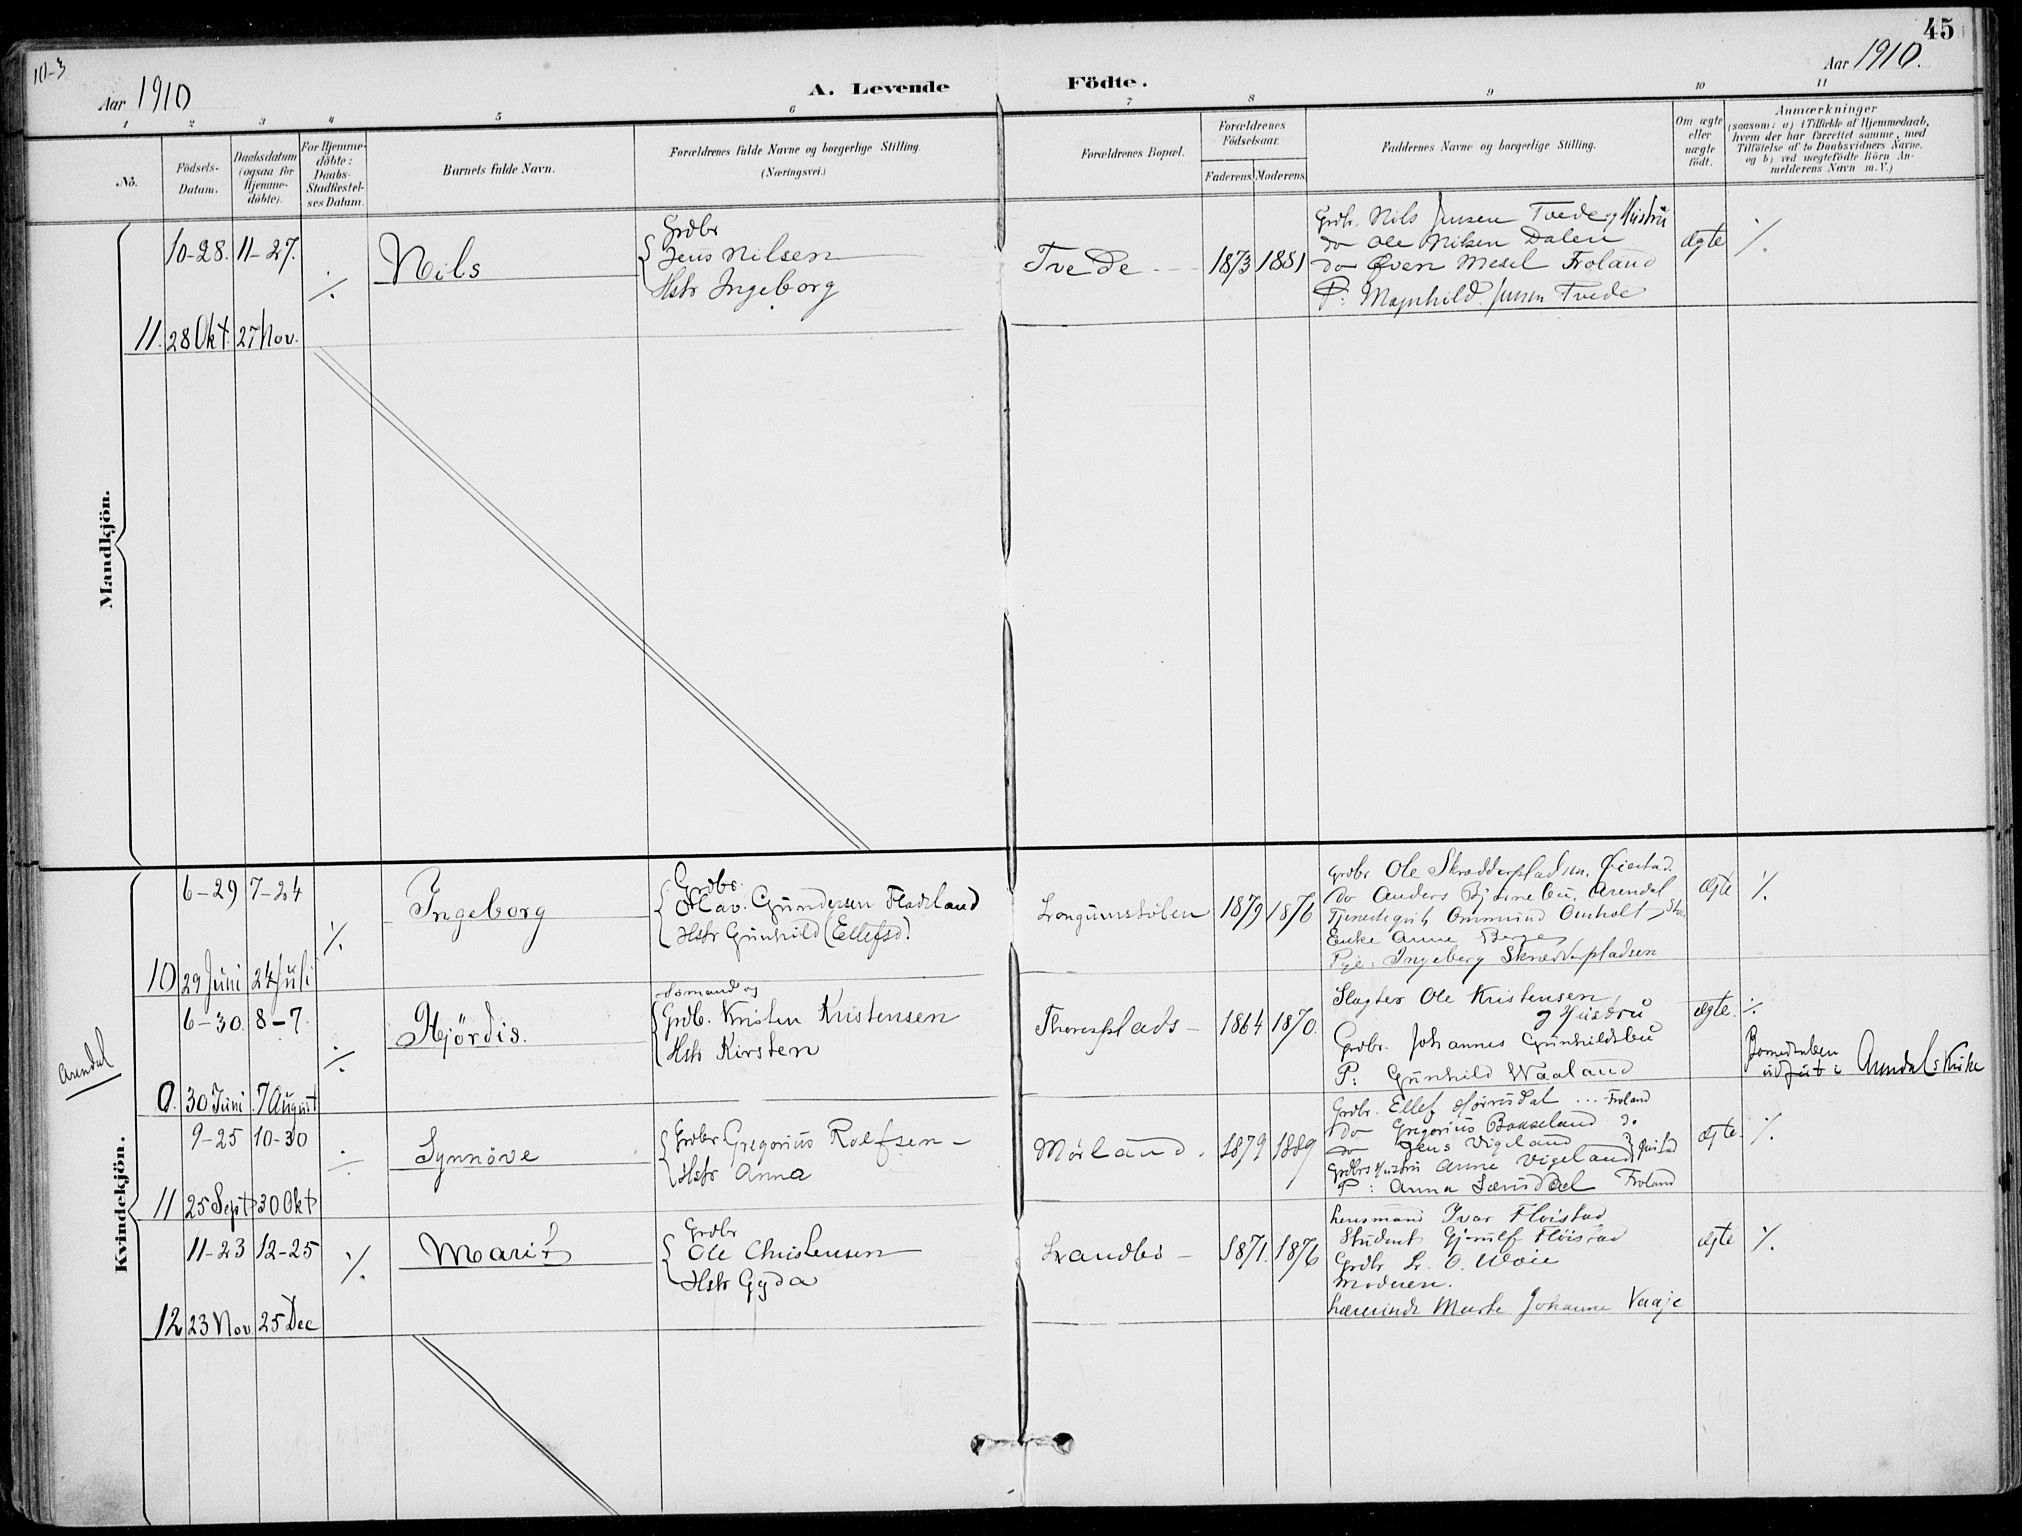 45
10-3
Aar 1910
A. Levende Födte.
Aar 1910.
1 2 3 4 5 6 7 8 9 10 11
No.
Födsels-
Datum.
Daabsdatum
(ogsaa for
Hjemme-
döbte).
For Hjemme-
döbte:
Daabs-
Stadfæstel-
ses Datum.
Barnets fulde Navn.
Forældrenes fulde Navne og borgerlige Stilling.
(Næringsvei.)
Forældrenes Bopæl.
Forældrenes
Födselsaar.
Faderens. Moderens.
Faddernes Navne og borgerlige Stilling.
Om ægte
eller
uægte
födt.
Anmærkninger
(saasom: a) i Tilfælde af Hjemmedaab,
hvem der har forrettet samme, med
Tilföielse af to Daabsvidners Navne,
og b) ved uægtefödte Börn An-
melderens Navn m.V.)
Mandkjön.
10-28. 11-27.
11. 28 Okt. 27 Nov.
÷
Nils
Grdbr
Jens Nilsen
Hstr Ingeborg
Tvede
1873 1881
Grdbr. Nils Jensen Tvede og Hustru
do Ole Nilsen Dalen
do Even Mesel Froland
P: Magnhild Jensen Tvede
ægte
÷
Kvindekjön.
6-29 7-24
10 29 Juni 24 Juli
÷
Ingeborg
Grdbr.
Olav Gundersen Fladeland
Hstr Gunhild (Ellefsd.)
Longumstølen
1879 1876
Grdbr Ole Skrædderpladsen, Øiestad.
do Anders Bjørnebu, Arendal
Ommund Omholt
Enke Anne Berge
Pige: Ingeborg Skrædderpladsen
ægte
÷
Arendal
6-30. 8-7.
0. 30 Juni 7 August
÷
Hjördis.
Sømand og
Grdb. Kristen Kristensen
Hstr Kirsten
Thoresplads
1864 1870.
Slagter Ole Kristensen
og Hustru
Grdbr. Johannes Gunhildsbu
P: Gunhild Waaland
ægte.
÷
Arendals Kirke
9-25 10-30
11 25 Sept 30 Okt
÷
Synnöve
Grdbr Gregorius Rolfsen
Hstr Anna
Mørland.
1879 1889
Grdbr. Ellef Froland
do Gregorius do
do Jens Vigeland
Grdbrs Hustru Anne Vigeland
P: Anna Froland
ægte.
÷
11-23 12-25
12 23 Nov 25 Dec
÷
Marit
Grdbr
Ole Christensen
Hstr Gyda
Landbø
1871. 1876
Lensmand Ivar Fløistad
Student Gjerulf Fløistad
Grdbr
Moderen.
Lærerinde Marte Johanne Vaaje
ægte
÷